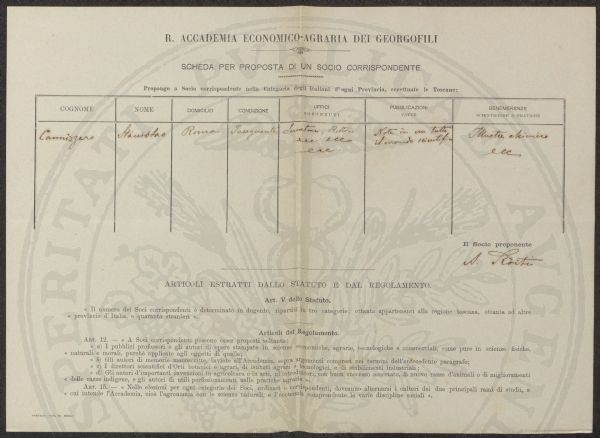 R. ACCADEMIA ECONOMICO-AGRARIA DEI GEORGOFILI
SCHEDA PER PROPOSTA DI UN SOCIO CORRISPONDENTE
Propongo a Socio corrispondente nella Categoria degli Italiani d'ogni Provincia, eccettuate le Toscane:
COGNOME NOME DOMICILIO CONDIZIONE UFFICI PUBBLICAZIONI BENEMERENZE
Cannizzaro Stanislao Roma Insegnante Senatore, Rettore Note in tutto Illustre chimico
ecc ecc il mondo scientifico ecc
ecc
Il Socio proponente
ARTICOLI ESTRATTI DALLO STATUTO E DAL REGOLAMENTO.
Art. V dello Statuto.
« Il numero dei Soci corrispondenti è determinato in dugento, ripartiti in tre categorie: ottanta appartenenti alla regione toscana, ottanta ad altre
« provincie d'Italia, « quaranta stranieri ».
Articoli del Regolamento.
Art. 12. — « A Soci corrispondenti possono esser proposti soltanto:
« a) I pubblici professori e gli autori di opere stampate in scienze economiche, agrarie, tecnologiche e commerciali, come pure in scienze fisiche,
« naturali e morali, purchè applicate agli oggetti di quelle;
« b) Gli autori di memorie manoscritte, inviate all'Accademia, sopra argomenti compresi nei termini dell'antecedente paragrafo;
« c) I direttori scientifici d'Orti botanici o agrari, di istituti agrari e tecnologici, e di stabilimenti industriali;
« d) Gli autori d'importanti invenzioni in agricoltura o in arti, gl'introduttori, con buon successo accertato, di nuove razze d'animali o di miglioramenti
« delle razze indigene, e gli autori di utili perfezionamenti nelle pratiche agrarie ».
Art. 15. — « Nelle elezioni per ogni categoria dei Soci, ordinari e corrispondenti, dovranno alternarsi i cultori dei due principali rami di studii, a
« cui intende l'Accademia, cioè l'agronomia con le scienze naturali, e l'economia comprendente le varie discipline sociali ».